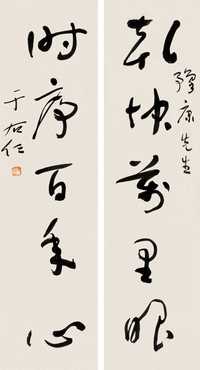 乾坤萬里眼
豫康先生
時序百年心
于右任